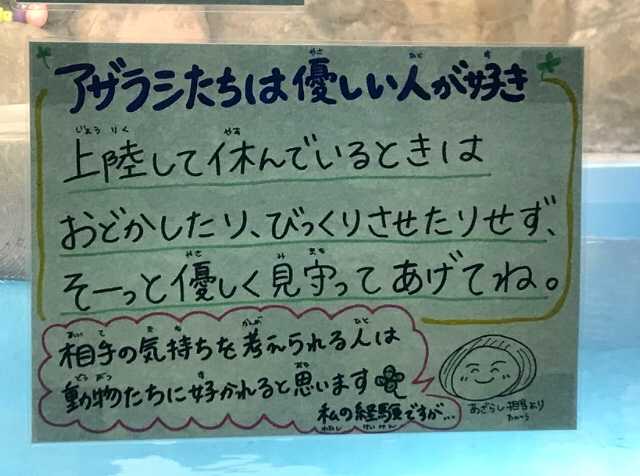 アザラシたちは優しい人が好き
上陸して休んでいるときは
おどかしたり、びっくりさせたりせず、
そーっと優しく見守ってあげてね。
相手の気持ちを考えられる人は
動物たちに好かれると思います
私の経験ですが…
あざらし担当より